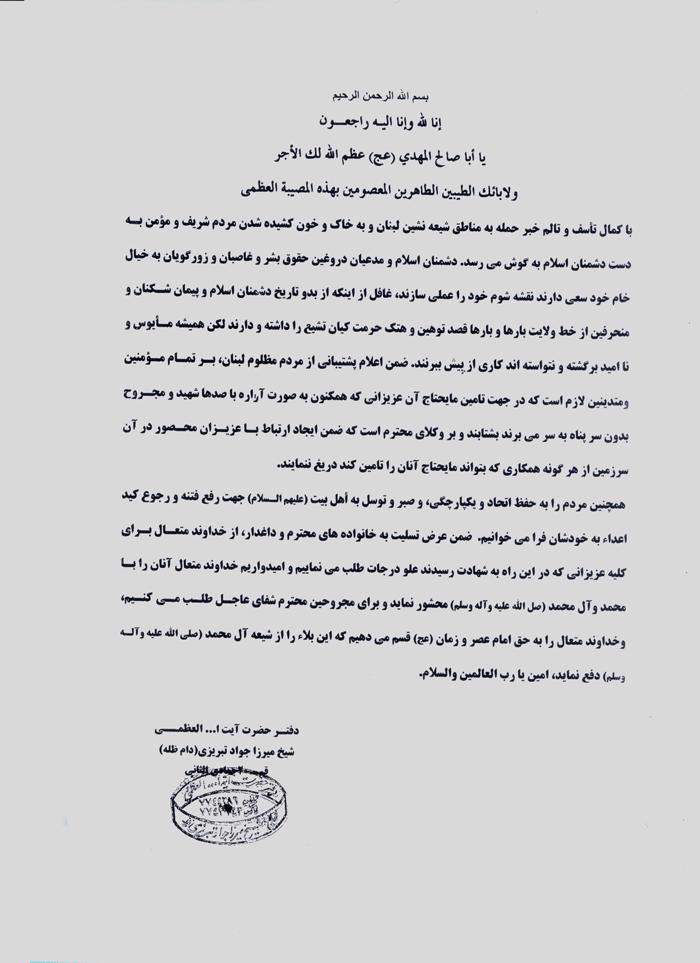 بسم الله الرحمن الرحیم
إنا لله وإنا الیـه راجعـــون
یا أبا صالح المهدي (عج) عظم الله لك الأجر
ولابائك الطیبین الطاهرین المعصومین بهذه المصیبة العظمی
با کمال تأسف و تالم خبر حمله به مناطق شیعه نشین لبنان و به خاک و خون کشیده شدن مردم شریف و مؤمن بـه
دست دشمنان اسلام به گوش می رسد. دشمنان اسلام و مدعیان دروغین حقوق بشر و غاصبان و زورگویان به خیال
خام خود سعی دارند نقشه شوم خود را عملی سازند، غافل از اینکه از بدو تاریخ دشمنان اسلام و پیمان شکنان و
منحرفین از خط ولایت بارها و بارها قصد توهین و هتک حرمت کیان تشیع را داشته و دارند لکن همیشه مـأیوس و
نا امید برگشته و نتواسته اند کاری از پیش ببرنند. ضمن اعلام پشتیبانی از مردم مظلوم لبنان، بـر تمـام مـؤمنین
ومتدینین لازم است که در جهت تامین مایحتاج آن عزیزانی که همکنون به صورت آراره با صدها شهید و مجـروح
بدون سر پناه به سر می برند بشتابند و بر وکلای محترم است که ضمن ایجاد ارتباط بـا عزیـزان محـصور در آن
سرزمین از هر گونه همکاری که بتواند مایحتاج آنان را تامین کند دریغ ننمایند.
همچنین مردم را به حفظ اتحاد و یکپارچگی، و صبر و توسل به أهل بیت (علیهم السلام) جهت رفع فتنه و رجوع کید
اعداء به خودشان فرا می خوانیم. ضمن عرض تسلیت به خانواده های محترم و داغدار، از خداوند متعـال بـرای
کلیه عزیزانی که در این راه به شهادت رسیدند علو درجات طلب می نماییم و امیدواریم خداوند متعال آنان را بـا
محمد وآل محمد (صل الله علیه وآله وسلم) محشور نماید و برای مجروحین محترم شفای عاجـل طلـب مـی کنـیم،
وخداوند متعال را به حق امام عصر و زمان (عج) قسم می دهیم که این بلاء را از شیعه آل محمد (صلی الله علیه وآلـه
وسلم) دفع نماید، امین یا رب العالمین والسلام.
دفتـر حضرت آیت ا... العظمـــی
شیخ میرزا جواد تبریزی(دام ظله)